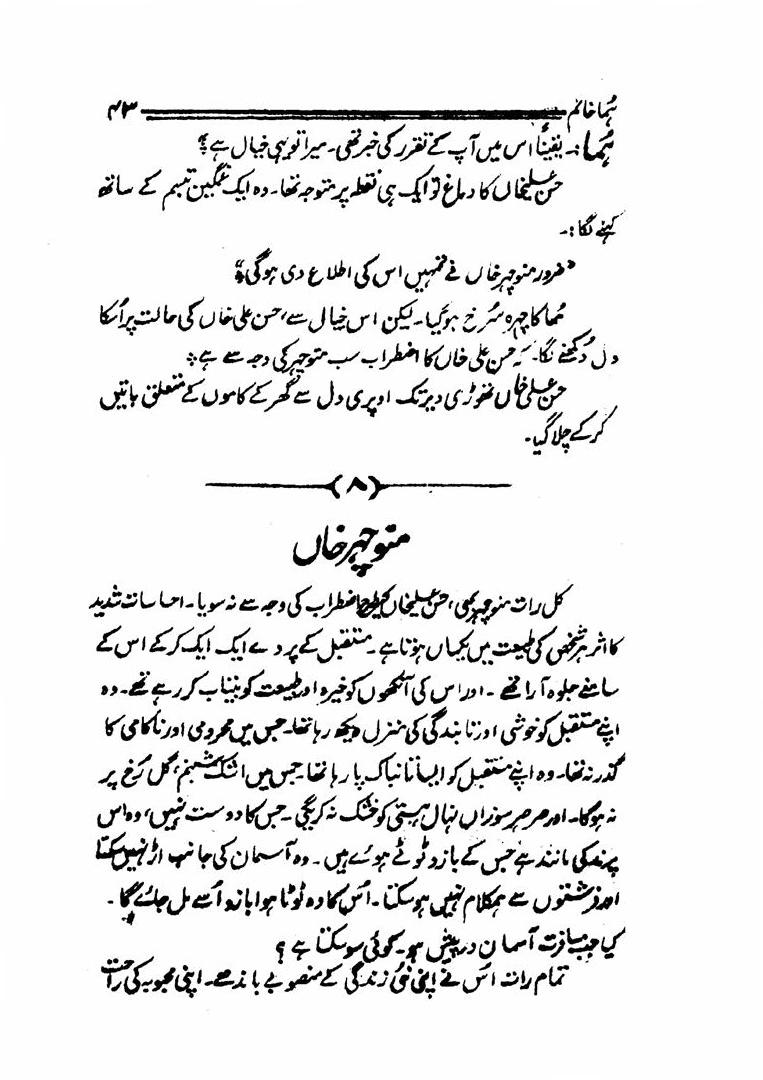 ہُما خانم ۴۳
ہُما:۔ یقیناً اس میں آپ کے تقرر کی خبر تھی۔ میرا تو یہی خیال ہے؟"
حسن علیخاں کا دماغ تو ایک ہی نقطہ پر متوجہ تھا۔ وہ ایک غمگین تبسم کے ساتھ
کہنے لگا:۔
"ضرور منوچہر خاں نے تمہیں اس کی اطلاع دی ہوگی؟"
ہُما کا چہرہ سُرخ ہوگیا۔ لیکن اس خیال سے، حسن علی خاں کی حالت پر اُسکا
دل دُکھنے لگا۔ کہ حسن علی خاں کا اضطراب سب منوچہر کی وجہ سے ہے؞
حسن علی خاں تھوڑی دیر تک اوپری دل سے گھر کے کاموں کے متعلق باتیں
کرکے چلا گیا۔
(۸)
منوچہر خاں
کل رات منوچہر بھی، حسن علیخاں کیطرح اضطراب کی وجہ سے نہ سویا۔ احساسات شدید
کا اثر ہر شخص کی طبیعت میں یکساں ہوتا ہے۔ مستقبل کے پردے ایک ایک کرکے اس کے
سامنے جلوہ آرا تھے۔ اور اس کی آنکھوں کو خیرہ اور طبیعت کو بیتاب کر رہے تھے۔ وہ
اپنے مستقبل کو خوشی اور تابندگی کی منزل دیکھ رہا تھا۔ جس میں محرومی اور ناکامی کا
گذر نہ تھا۔ وہ اپنے مستقبل کو ایسا تابناک پا رہا تھا۔ جس میں اشک شبنم، گل رُخ پر
نہ ہوگا۔ اور صرصر سوزاں نہال ہستی کو خشک نہ کریگی۔ جس کا دوست نہیں، وہ اس
پرند کی مانند ہے جس کے بازو ٹوٹے ہوئے ہیں۔ وہ آسمان کی جانب اڑ نہیں سکتا
اور فرشتوں سے ہمکلام نہیں ہوسکتا۔ اُس کا وہ ٹوٹا ہوا بازو اُسے مل جائے گا۔
کیا جب مسافرت آسمان درپیش ہو۔ کوئی سو سکتا ہے؟
تمام رات اُس نے اپنی نئی زندگی کے منصوبے باندھے۔ اپنی محبوبہ کی راحت